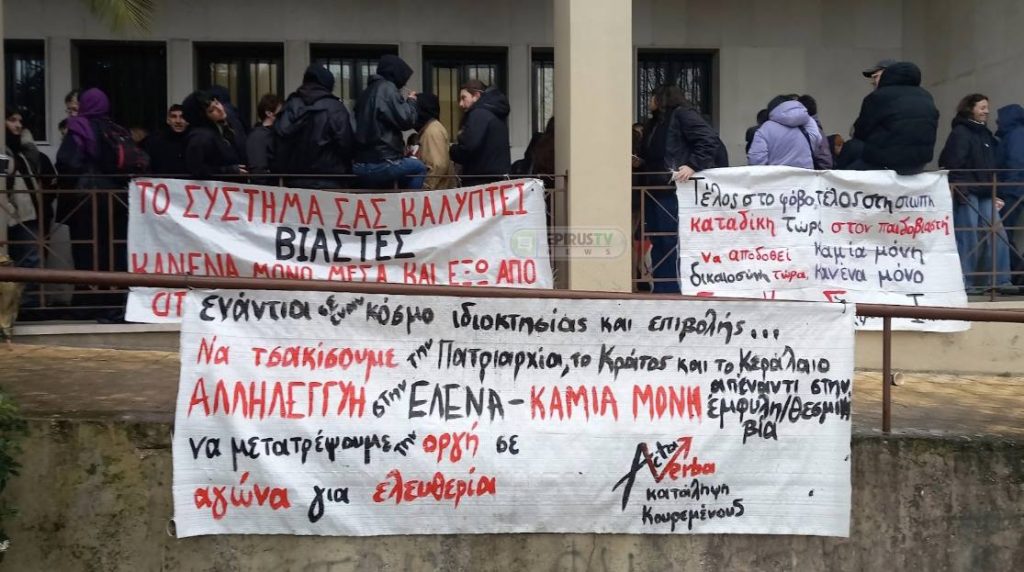 ΤΟ ΣΥΣΤΗΜΑ ΣΑΣ ΚΑΛΥΠΤΕΙ
ΒΙΑΣΤΕΣ
ΚΑΝΕΝΑ ΜΟΝΟ ΜΕΣΑ ΚΑΙ ΕΞΩ ΑΠΟ
EPIRUSTV
NEWS
Τέλος στο φόβο, τέλος στη σιωπη
καταδίκη τώρα στον παιδοβιαστή
να αποδοθεί καμία μόνη
δικαιοσύνη τώρα, κανένα μόνο
ενάντια σε έναν κόσμο ιδιοκτησίας και επιβολής...
Να τσακίσουμε την Πατριαρχία, το Κράτος και το Κεφάλαιο
ΑΛΛΗΛΕΓΓΥΗ στην ΕΛΕΝΑ - ΚΑΜΙΑ ΜΟΝΗ απέναντι στην
έμφυλη/θεσμική
βία
να μετατρέψουμε την οργή σε
αγώνα για ελευθερία
Acta
et
Verba
κατάληψη
Κουρεμένους